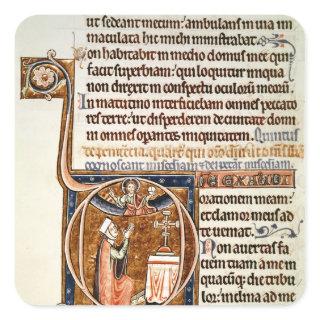 ut sedeant mecum: ambulans in uia in
maculata hic michi ministrabat.
on habitabit in medio domus mee qui
facit superbiam: qui loquitur iniqua
non direxit in conspectu oculorū meorū.
In matutino interficiebam omnes peccato
res terre: ut disperderem de ciuitate domi
ni omnes operantes iniquitatem. Quintus
de penitentia. quare qui
cognoscant
NE EXAUDI
orationem meam:
et clamor meus ad
te ueniat.
Non auertas fa
ciem tuam a me in
quacūq; die tribu
lor: inclina ad me